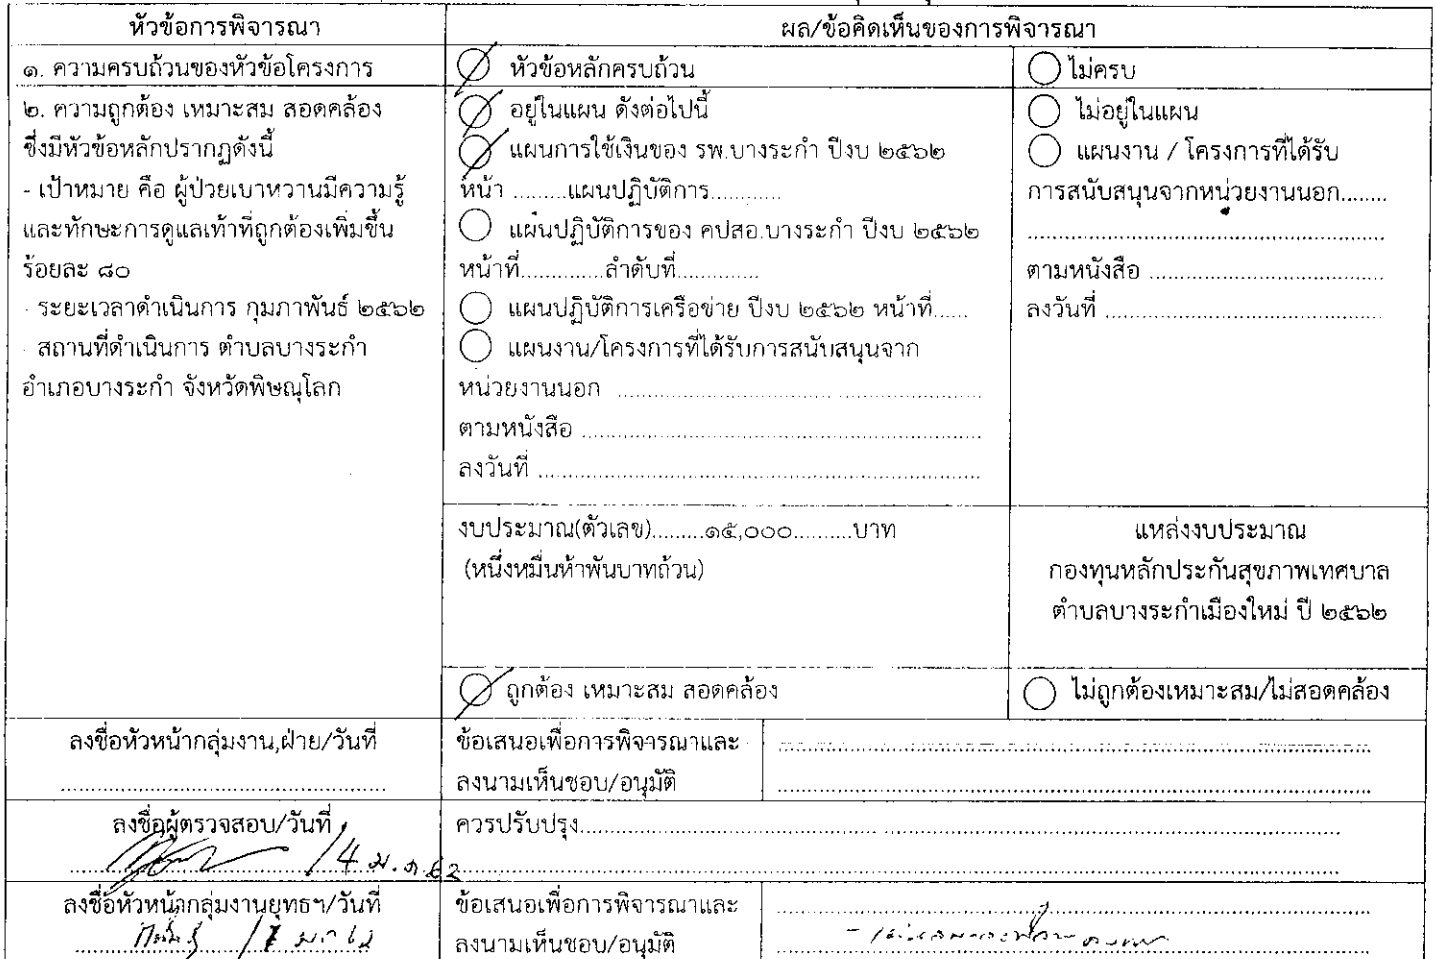 หัวข้อการพิจารณา
ผล/ข้อคิดเห็นของการพิจารณา
๑. ความครบถ้วนของหัวข้อโครงการ
หัวข้อหลักครบถ้วน
ไม่ครบ
๒. ความถูกต้อง เหมาะสม สอดคล้อง
ซึ่งมีหัวข้อหลักปรากฏดังนี้
- เป้าหมาย คือ ผู้ป่วยเบาหวานมีความรู้
และทักษะการดูแลเท้าที่ถูกต้องเพิ่มขึ้น
ร้อยละ ๘๐
- ระยะเวลาดำเนินการ กุมภาพันธ์ ๒๕๖๒
- สถานที่ดำเนินการ ตำบลบางระกำ
อำเภอบางระกำ จังหวัดพิษณุโลก
อยู่ในแผน ดังต่อไปนี้
แผนการใช้เงินของ รพ.บางระกำ ปีงบ ๒๕๖๒
หน้า .........แผนปฏิบัติการ............
แผนปฏิบัติการของ คปสอ.บางระกำ ปีงบ ๒๕๖๒
หน้าที่.............ลำดับที่.............
แผนปฏิบัติการเครือข่าย ปีงบ ๒๕๖๒ หน้าที่......
แผนงาน/โครงการที่ได้รับการสนับสนุนจาก
หน่วยงานนอก ............................................................
ตามหนังสือ ............................................................
ลงวันที่ ............................................................
ไม่อยู่ในแผน
แผนงาน / โครงการที่ได้รับ
การสนับสนุนจากหน่วยงานนอก........
............................................................
ตามหนังสือ ........................................
ลงวันที่ ................................................
งบประมาณ(ตัวเลข).........๑๕,๐๐๐..........บาท
(หนึ่งหมื่นห้าพันบาทถ้วน)
แหล่งงบประมาณ
กองทุนหลักประกันสุขภาพเทศบาล
ตำบลบางระกำเมืองใหม่ ปี ๒๕๖๒
ถูกต้อง เหมาะสม สอดคล้อง
ไม่ถูกต้องเหมาะสม/ไม่สอดคล้อง
ลงชื่อหัวหน้ากลุ่มงาน,ฝ่าย/วันที่
............................................................
ข้อเสนอเพื่อการพิจารณาและ
ลงนามเห็นชอบ/อนุมัติ
ลงชื่อผู้ตรวจสอบ/วันที่
/4 ม.ค. 62
ควรปรับปรุง............................................................
ลงชื่อหัวหน้ากลุ่มงานยุทธฯ/วันที่
ข้อเสนอเพื่อการพิจารณาและ
ลงนามเห็นชอบ/อนุมัติ